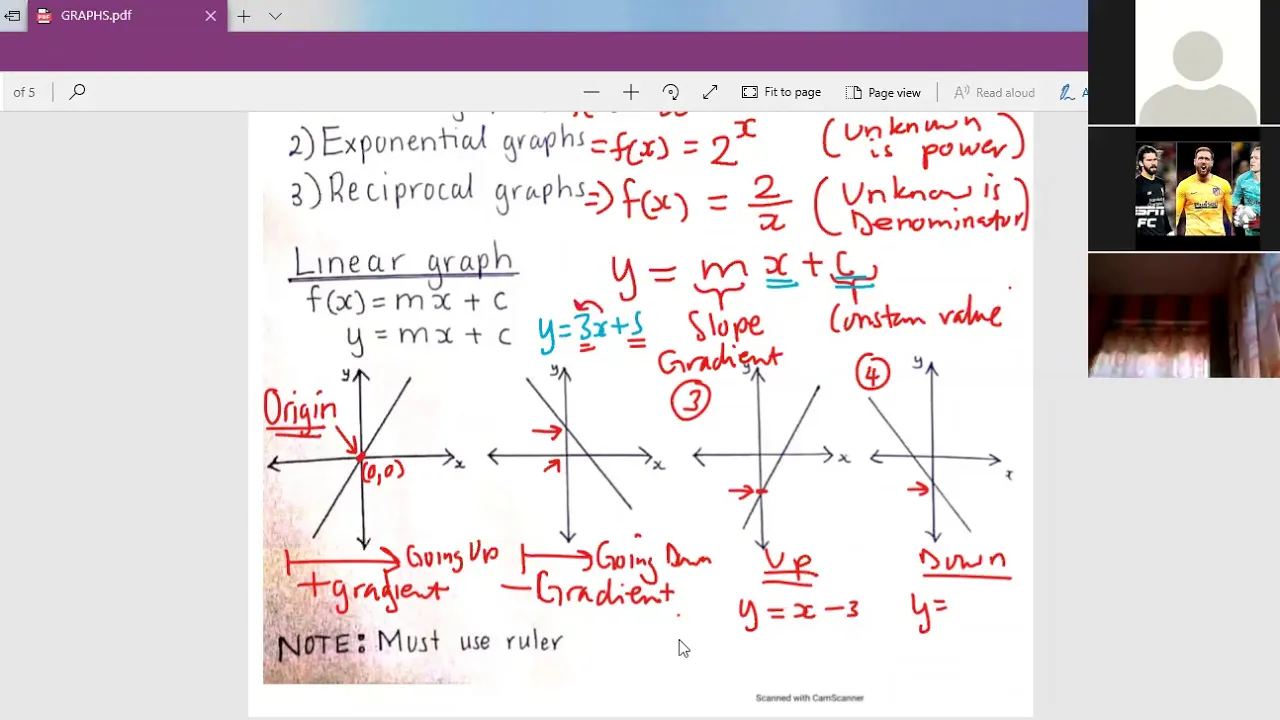 GRAPHS.pdf
of 5
Fit to page
Page view
Read aloud
2) Exponential graphs = f(x) = 2^x (Unknown is power)
3) Reciprocal graphs => f(x) = 2/x (Unknow is Denominator)
Linear graph
y = m x + c
f(x) = m x + c
y = m x + c
y = 3x + 5
Slope
Gradient
Constan value
Origin
(0,0)
y
x
y
x
3
y
x
4
y
x
Going Up
+ gradient
Going Down
- Gradient
Up
y = x - 3
Down
y =
NOTE: Must use ruler
Scanned with CamScanner